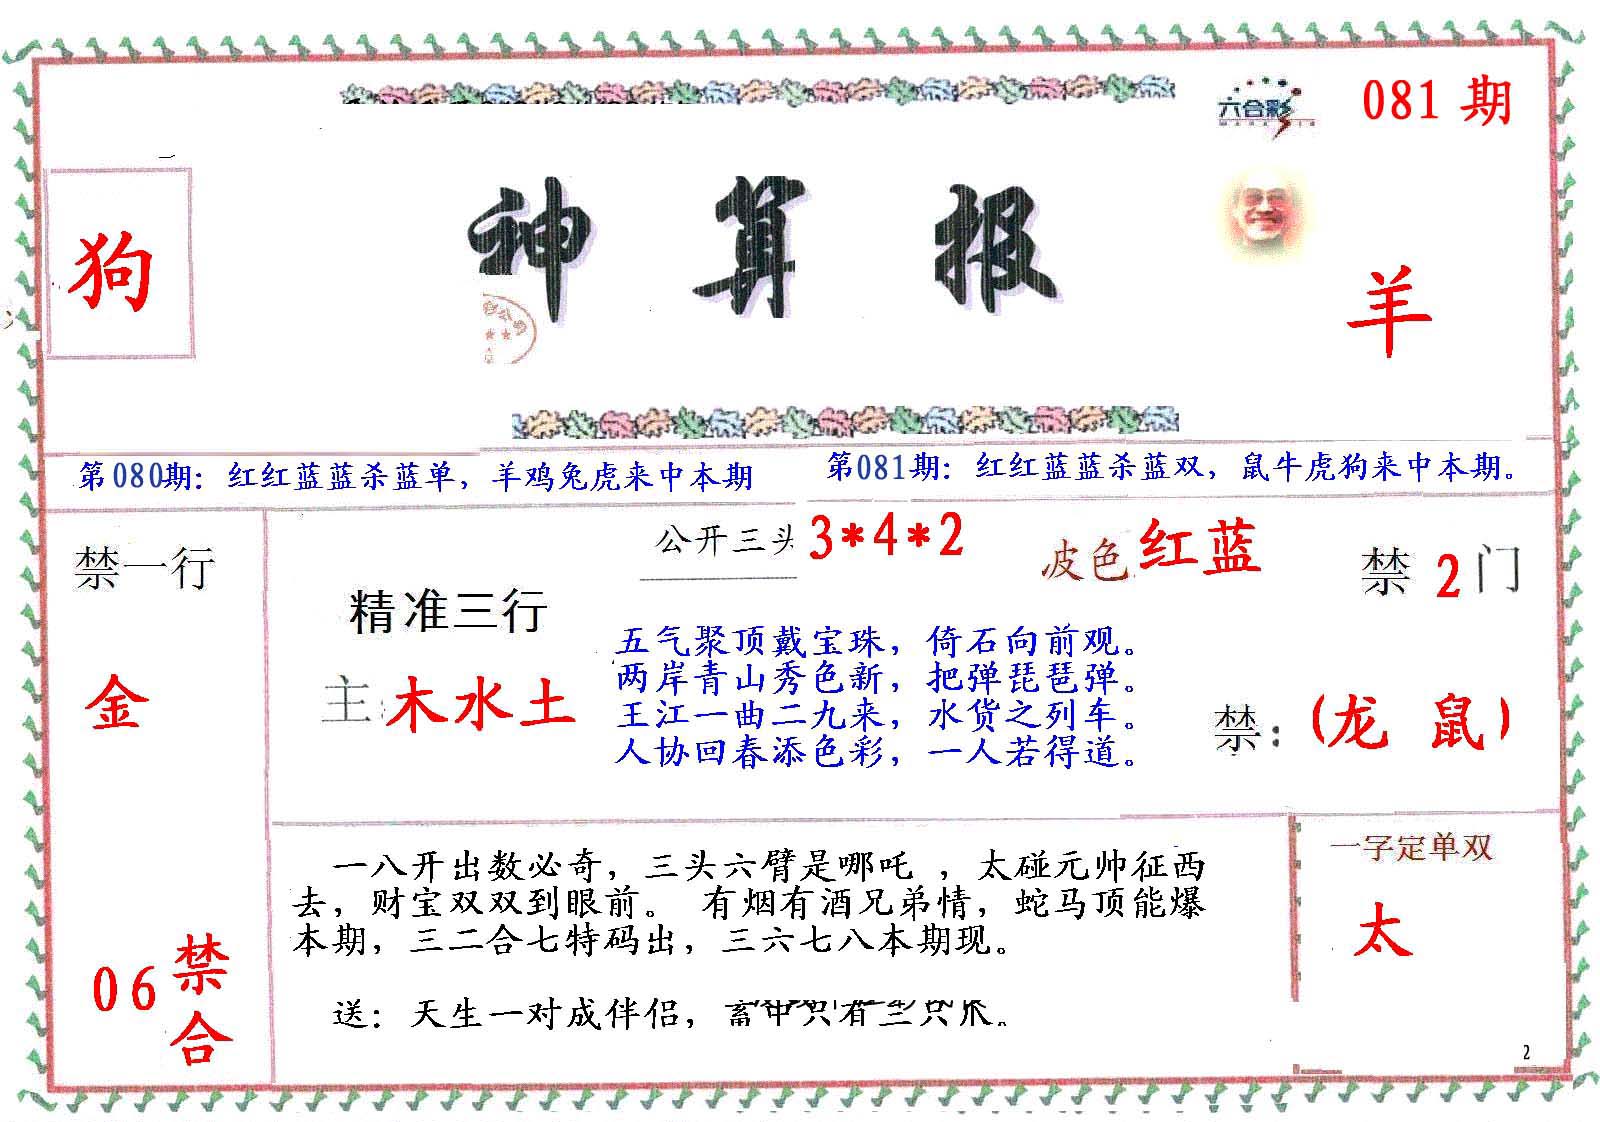 六合彩
081 期
神算报
狗
羊
第080期：红红蓝蓝杀蓝单，羊鸡兔虎来中本期
第081期：红红蓝蓝杀蓝双，鼠牛虎狗来中本期。
禁一行
金
06 禁合
公开三头 3*4*2
皮色 红蓝
禁 2 门
精准三行
主: 木水土
五气聚顶戴宝珠，倚石向前观。
两岸青山秀色新，把弹琵琶弹。
王江一曲二九来，水货之列车。
人协回春添色彩，一人若得道。
禁: (龙 鼠)
一八开出数必奇，三头六臂是哪吒 ，太碰元帅征西
去，财宝双双到眼前。 有烟有酒兄弟情，蛇马顶能爆
本期，三二合七特码出，三六七八本期现。
送：天生一对成伴侣，畜中只有三只爪。
一字定单双
太
2